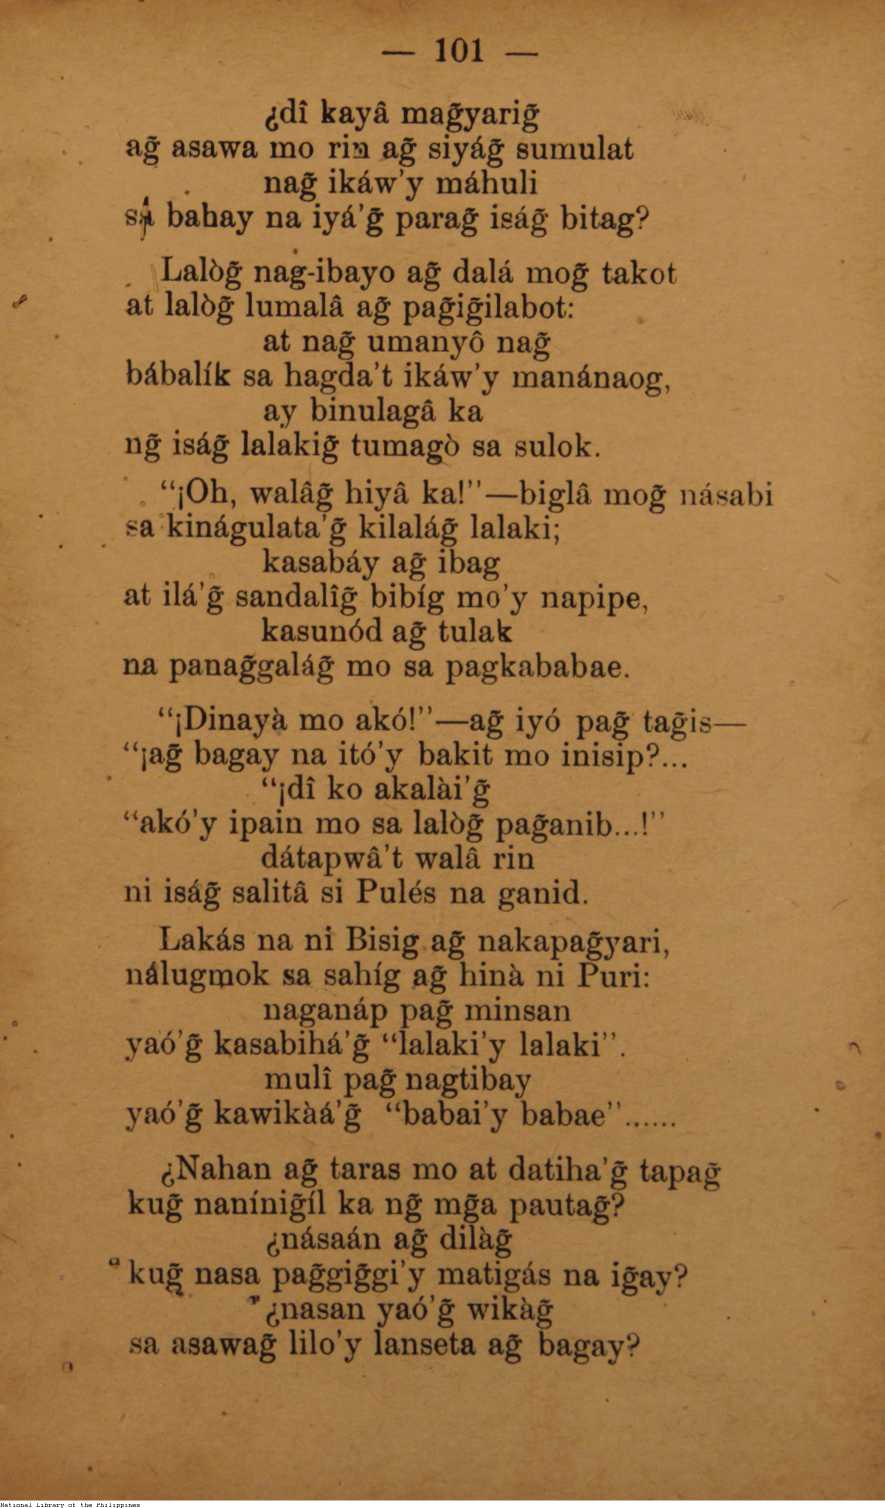 — 101 —
¿dî kayâ mag̃yarig̃
ag̃ asawa mo rin ag̃ siyág̃ sumulat
nag̃ ikáw'y máhuli
sa bahay na iyá'g̃ parag̃ iság̃ bitag?
Lalòg̃ nag-ibayo ag̃ dalá mog̃ takot
at lalòg̃ lumalâ ag̃ pag̃ig̃ilabot:
at nag̃ umanyô nag̃
bábalík sa hagda't ikáw'y manánaog,
ay binulagâ ka
ng̃ iság̃ lalakig̃ tumagò sa sulok.
“¡Oh, walâg̃ hiyâ ka!”—biglâ mog̃ násabi
sa kinágulata'g̃ kilalág̃ lalaki;
kasabáy ag̃ ibag
at ilá'g̃ sandalîg̃ bibíg mo'y napipe,
kasunód ag̃ tulak
na panag̃galág̃ mo sa pagkababae.
“¡Dinayà mo akó!”—ag̃ iyó pag̃ tag̃is—
“¡ag̃ bagay na itó'y bakit mo inisip?...
“¡dî ko akalài'g̃
“akó'y ipain mo sa lalòg̃ pag̃anib...!”
dátapwâ't walâ rin
ni iság̃ salitâ si Pulés na ganid.
Lakás na ni Bisig ag̃ nakapag̃yari,
nálugmok sa sahíg ag̃ hinà ni Puri:
naganáp pag̃ minsan
yaó'g̃ kasabihá'g̃ “lalaki'y lalaki”.
mulî pag̃ nagtibay
yaó'g̃ kawikàá'g̃ “babai'y babae”......
¿Nahan ag̃ taras mo at datiha'g̃ tapag̃
kug̃ naníníg̃íl ka ng̃ mg̃a pautag̃?
¿násaán ag̃ dilàg̃
kug̃ nasa pag̃gig̃gi'y matigás na ig̃ay?
¿nasan yaó'g̃ wikàg̃
sa asawag̃ lilo'y lanseta ag̃ bagay?
National Library of the Philippines